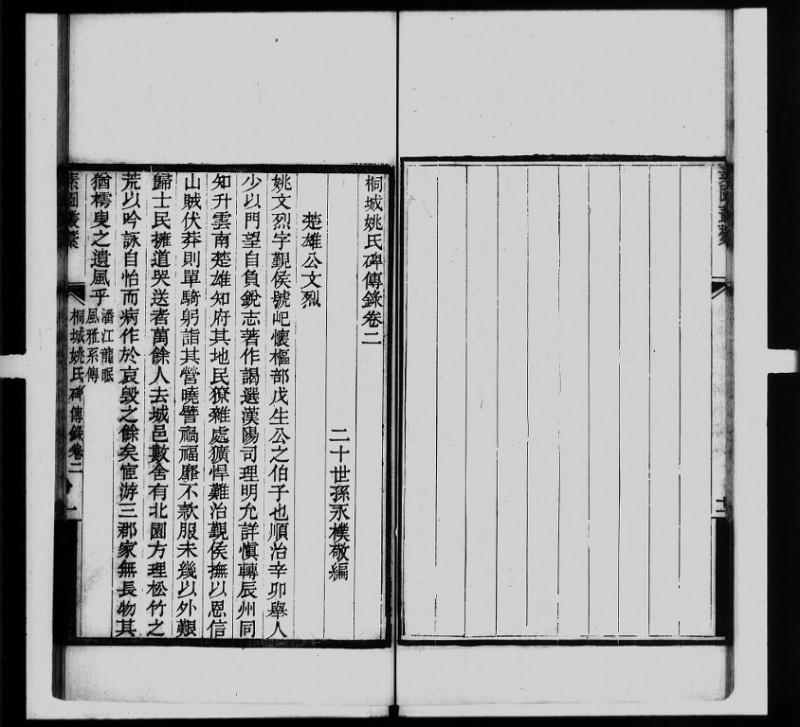 桐城姚氏碑傳錄卷二
二十世孫永樸敬編
楚雄公文烈
姚文烈字覲侯號屺懷樞部戊生公之伯子也順治辛卯舉人
少以門望自負銳志著作謁選漢陽司理明允詳慎轉辰州同
知升雲南楚雄知府其地民獠雜處獷悍難治覲侯撫以恩信
山賊伏莽則單騎躬詣其營曉譬禍福靡不款服未幾以外艱
歸士民擁道哭送者萬餘人去城邑數舍有北園方理松竹之
荒以吟詠自怡而病作於哀毀之餘矣宦游三郡家無長物其
猶樗叟之遺風乎
潘江龍眠
風雅系傳
素園叢稾
桐城姚氏碑傳錄卷二
一